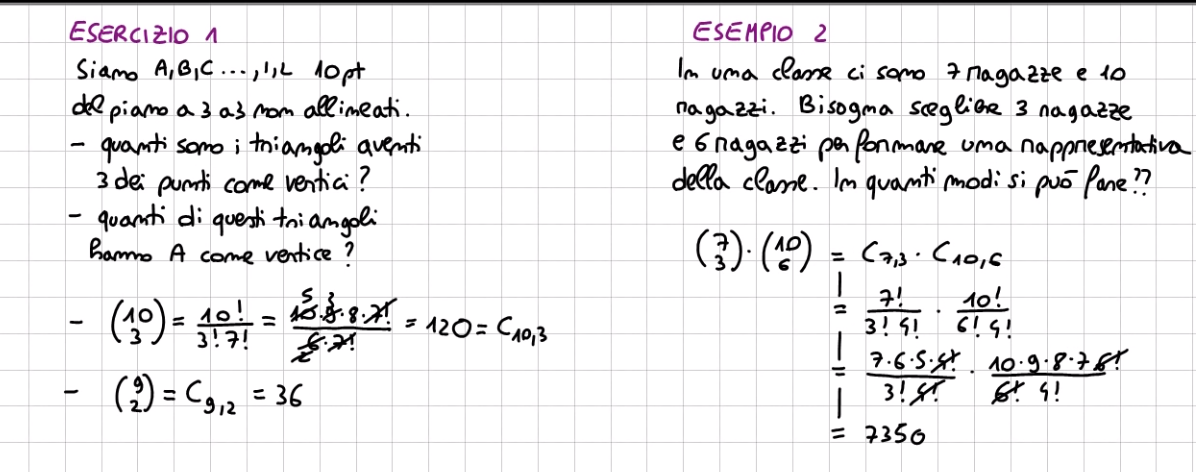 ESERCIZIO 1
Siano A,B,C ...,I,L 10 pt
del piano a 3 a 3 non allineati.
- quanti sono i triangoli aventi
3 dei punti come vertici?
- quanti di questi triangoli
hanno A come vertice?
- (10 3) = 10!/3!7! = 10·9·8·7!/6·7! = 120 = C10,3
- (9 2) = C9,2 = 36
ESEMPIO 2
In una classe ci sono 7 ragazze e 10
ragazzi. Bisogna scegliere 3 ragazze
e 6 ragazzi per formare una rappresentativa
della classe. In quanti modi si può fare??
(7 3)·(10 6) = C7,3 · C10,6
= 7!/3!4! · 10!/6!4!
= 7·6·5·4!/3!4! · 10·9·8·7 6!/6! 4!
= 7350